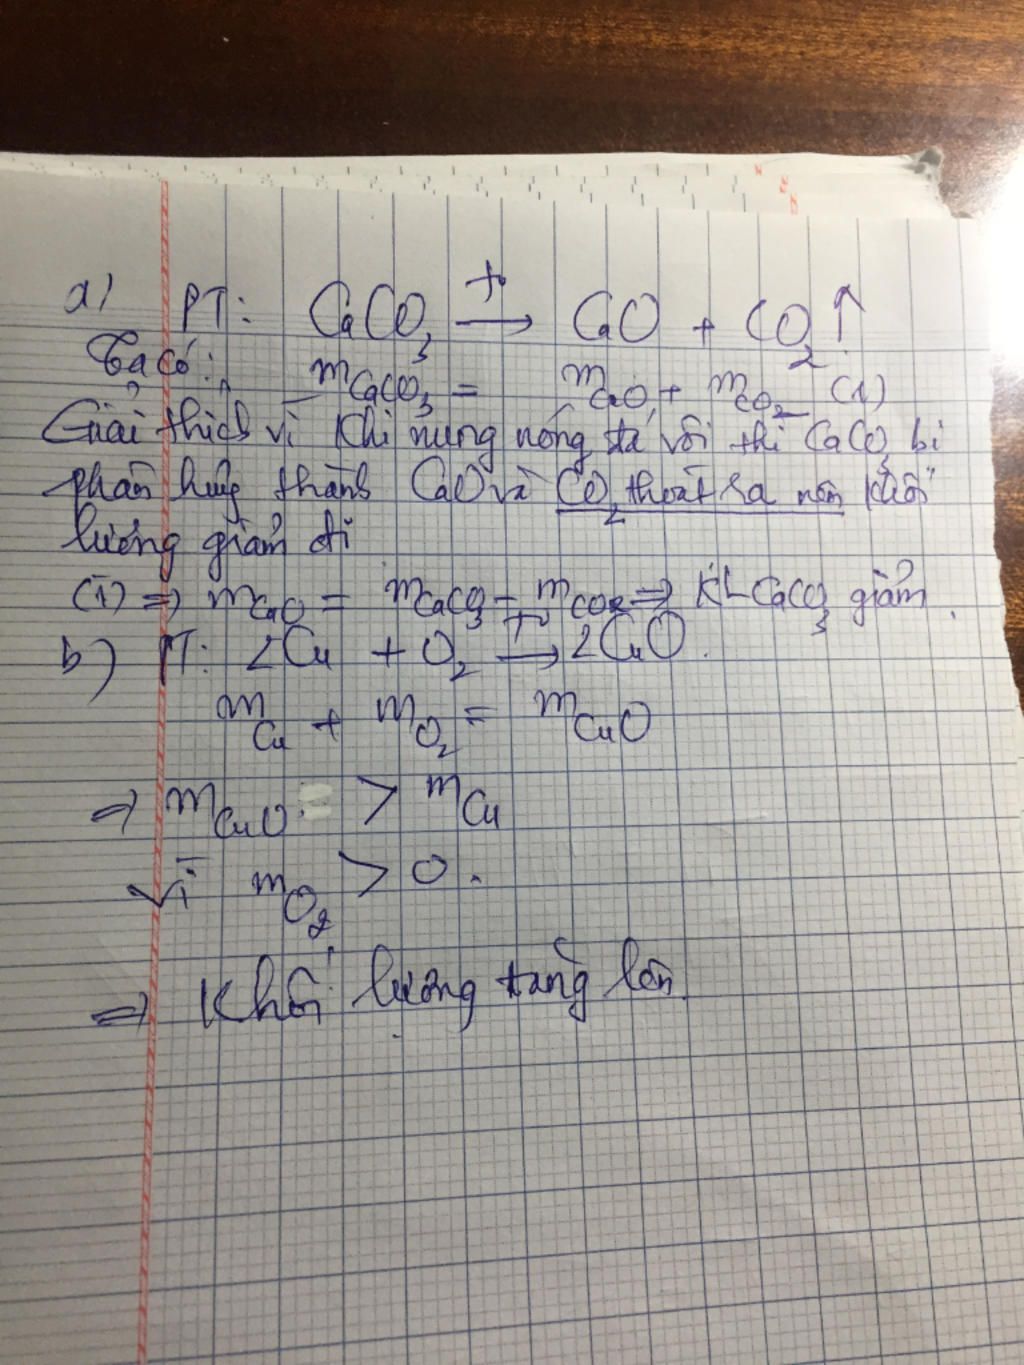 a) PT: CaCO₃ —t°→ CaO + CO₂↑
Ta có: mCaCO₃ = mCaO + mCO₂ (1)
Giải thích vì khi nung nóng đá vôi thì CaCO₃ bị
phân hủy thành CaO và CO₂ thoát ra nên khối
lượng giảm đi
(1) ⇒ mCaO = mCaCO₃ - mCO₂ ⇒ KL CaCO₃ giảm.
b) PT: 2Cu + O₂ —t°→ 2CuO.
mCu + mO₂ = mCuO
⇒ mCuO > mCu
Vì mO₂ > 0.
⇒ Khối lượng tăng lên.